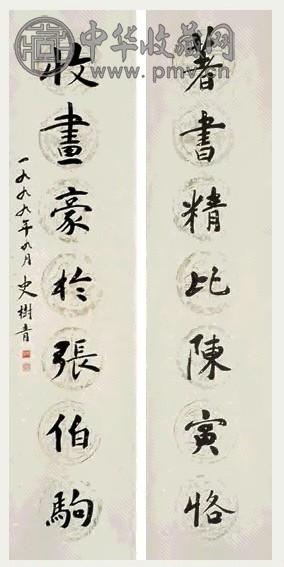 著書精比陳寅恪
收畫豪於張伯駒
一九九九年九月 史樹青
中华收藏网
www.pmv.cn